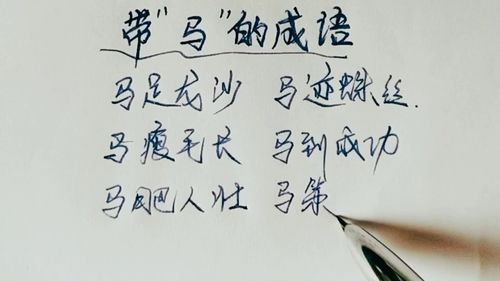 带"马"的成语
马足龙沙 马迹蛛丝.
马瘦毛长 马到成功
马肥人壮 马